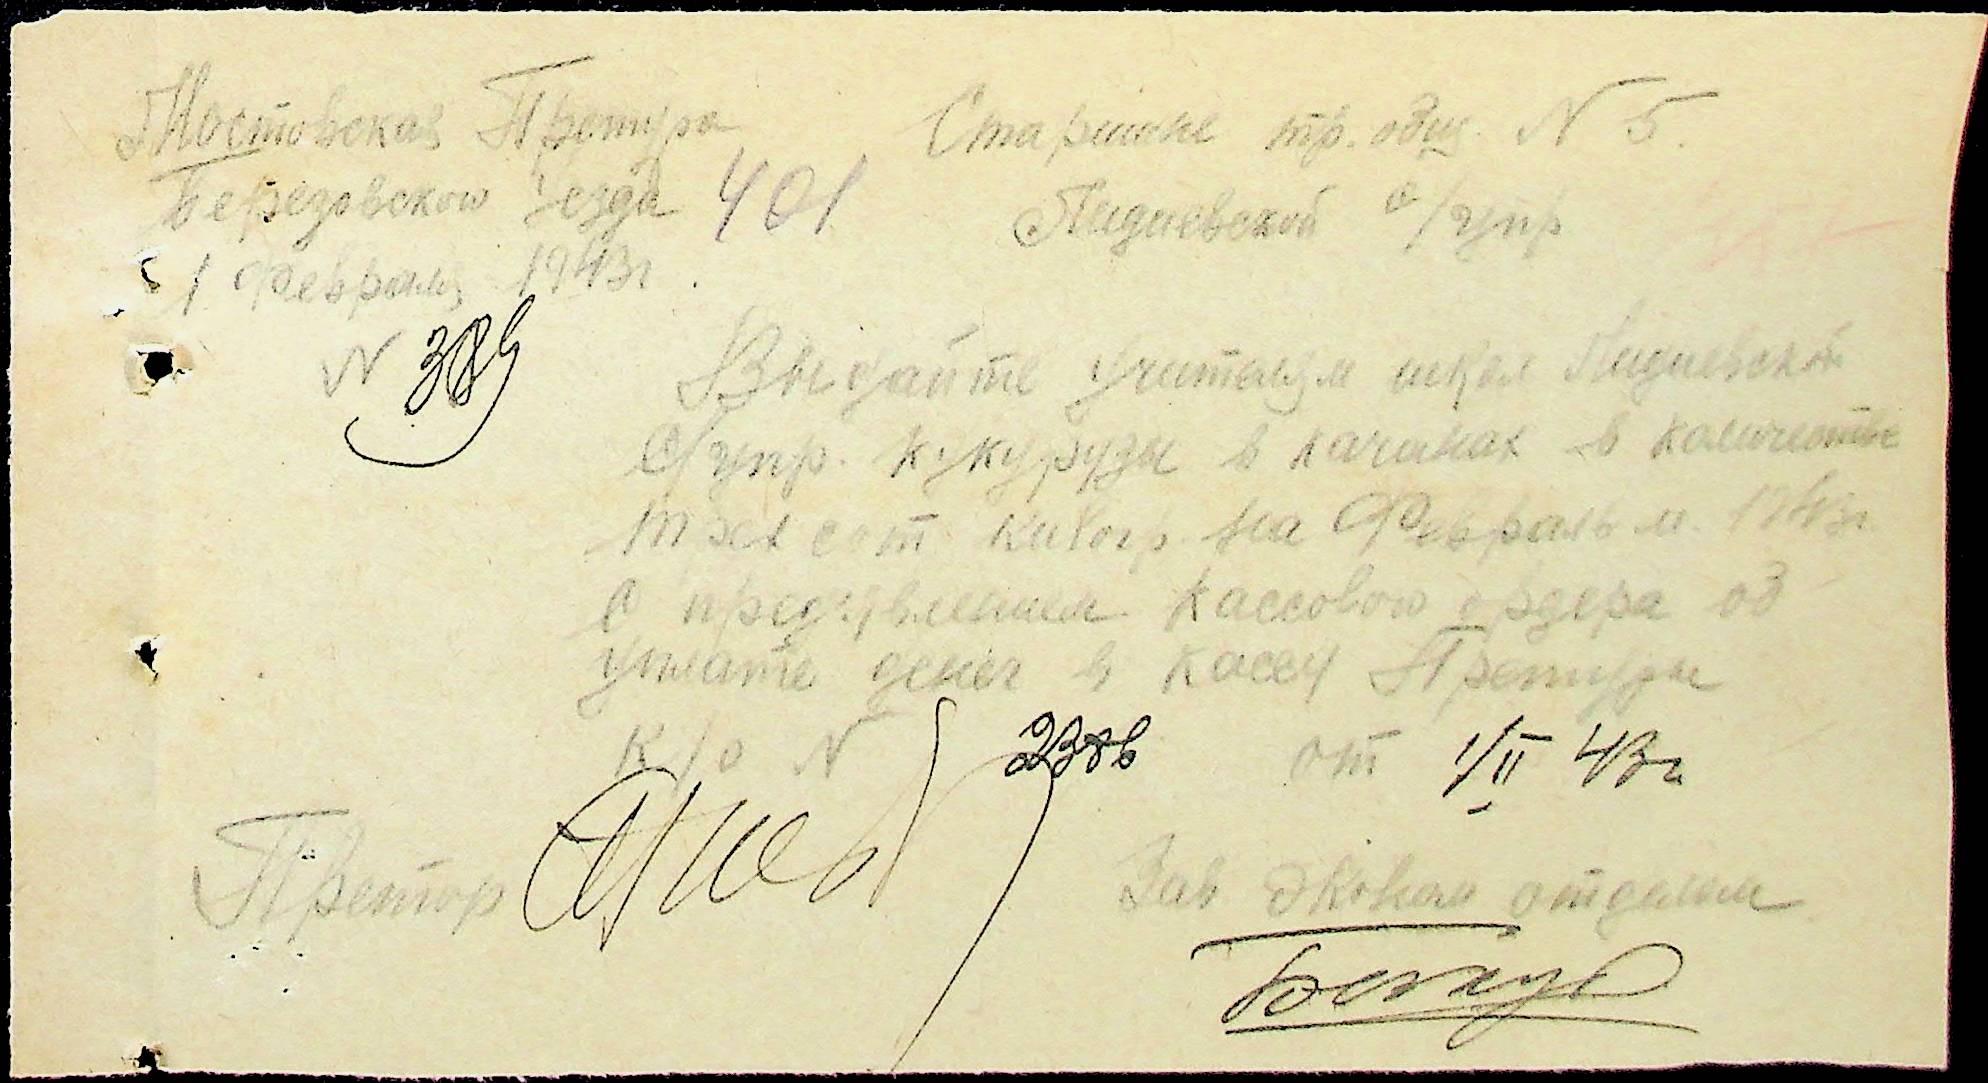 Мостовская Претура
Березовского уезда 401
1 Февраля 1943г.
N 389
Старшине тр. общ. N 5.
Лидиевской с/упр
Выдайте учителям школ Лидиевской
с/упр. кукурузы в качанах в количестве
трех сот килогр. на Февраль м. 1943г
с предъявлением кассового ордера об
уплате денег в кассу Претуры
К/о N от 1/II 43г
Претор
Зав Эконом отделом